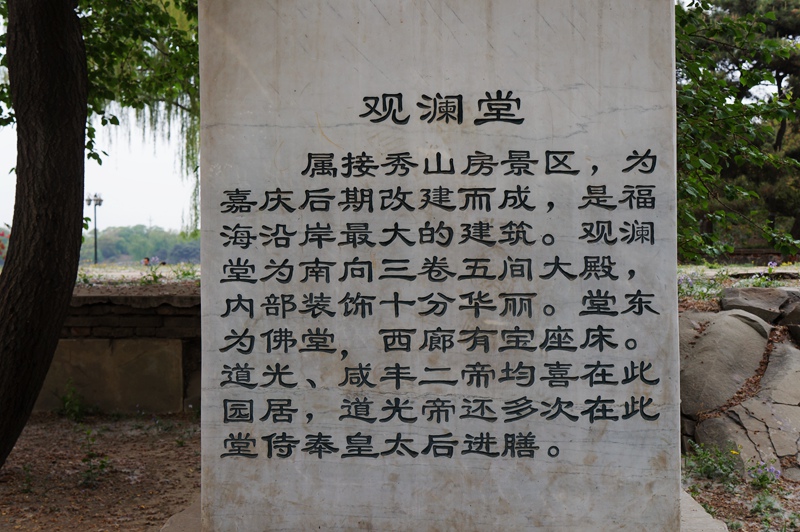 观澜堂
属接秀山房景区，为
嘉庆后期改建而成，是福
海沿岸最大的建筑。观澜
堂为南向三卷五间大殿，
内部装饰十分华丽。堂东
为佛堂，西廊有宝座床。
道光、咸丰二帝均喜在此
园居，道光帝还多次在此
堂侍奉皇太后进膳。